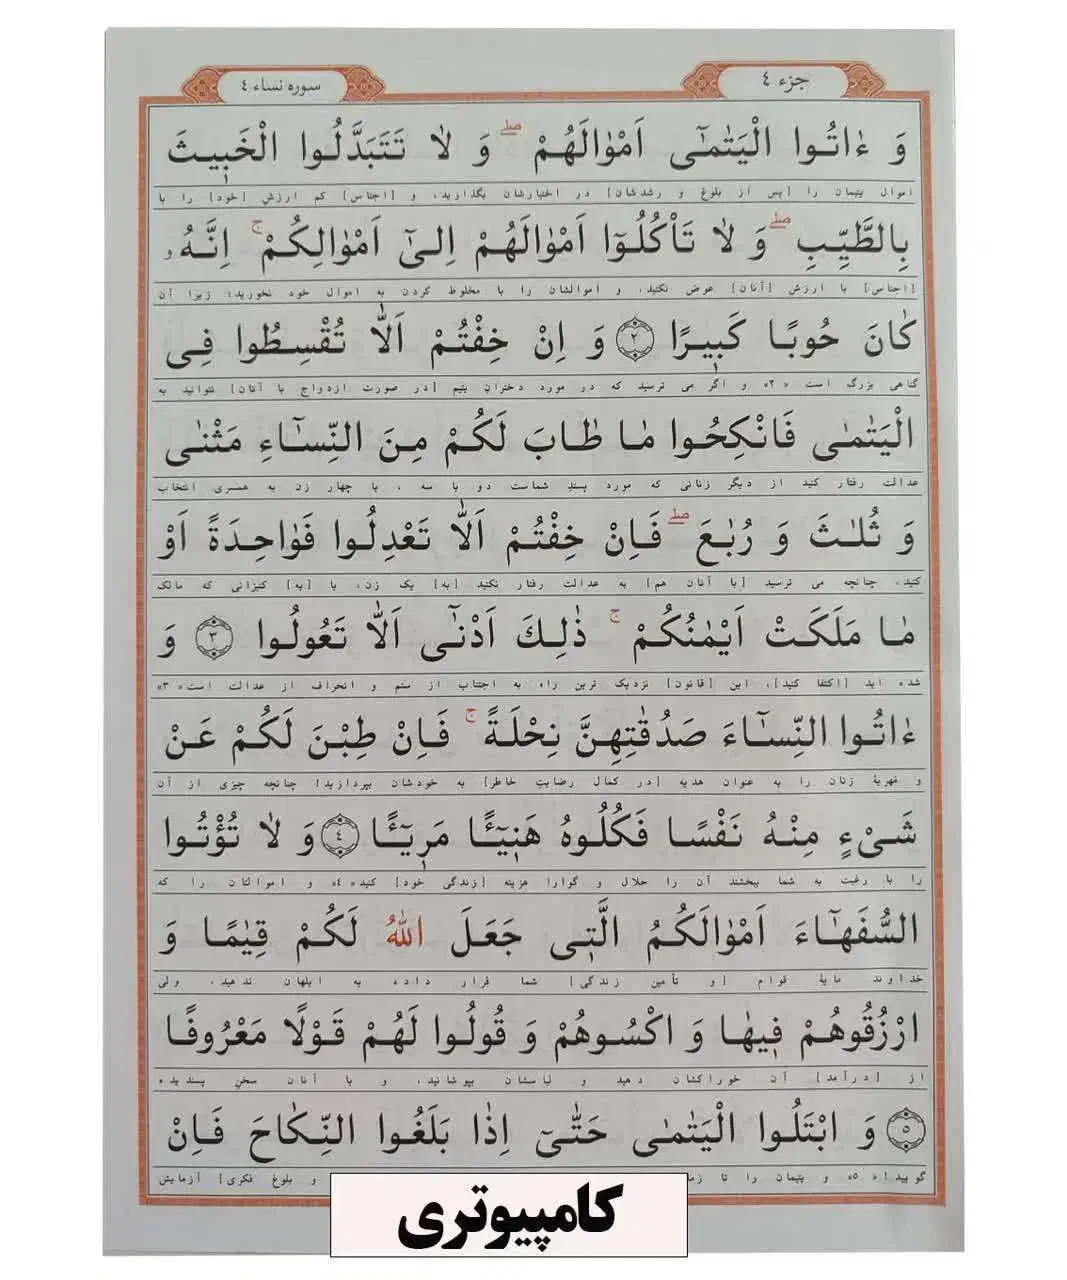 جزء ٤
سوره نساء ٤
وَ ءٰاتُوا الْيَتٰمٰٓى اَمْوٰالَهُمْ ۖ وَ لاٰ تَتَبَدَّلُوا الْخَبٖيثَ
اموال یتیمان را [پس از بلوغ و رشدشان] در اختیارشان بگذارید، و [اجناس] کم ارزش [خود] را با
بِالطَّيِّبِ ۖ وَ لاٰ تَأْكُلُوٓا اَمْوٰالَهُمْ اِلىٰٓ اَمْوٰالِكُمْ ۚ اِنَّهُۥ
[اجناس] با ارزش [آنان] عوض نکنید، و اموالشان را با مخلوط کردن به اموال خود نخورید؛ زیرا آن
كٰانَ حُوبًا كَبٖيرًا ﴿٢﴾ وَ اِنْ خِفْتُمْ اَلاّٰ تُقْسِطُوا فِى
گناهی بزرگ است «۲» و اگر می ترسید که در مورد دختران یتیم [در صورت ازدواج با آنان] نتوانید به
الْيَتٰمٰى فَانْكِحُوا مٰا طٰابَ لَكُمْ مِنَ النِّسٰٓاءِ مَثْنٰى
عدالت رفتار کنید از دیگر زنانی که مورد پسند شماست دو یا سه ، یا چهار زن به همسری انتخاب
وَ ثُلٰثَ وَ رُبٰعَ ۖ فَاِنْ خِفْتُمْ اَلاّٰ تَعْدِلُوا فَوٰاحِدَةً اَوْ
کنید. چنانچه می ترسید [با آنان هم] به عدالت رفتار نکنید [به] یک زن، یا [به] کنیزانی که مالک
مٰا مَلَكَتْ اَيْمٰنُكُمْ ۚ ذٰلِكَ اَدْنٰٓى اَلاّٰ تَعُولُوا ﴿٣﴾ وَ
شده اید [اکتفا کنید]. این [قانون] نزدیک ترین راه به اجتناب از ستم و انحراف از عدالت است «۳»
ءٰاتُوا النِّسٰٓاءَ صَدُقٰتِهِنَّ نِحْلَةً ۚ فَاِنْ طِبْنَ لَكُمْ عَنْ
و مَهریهٔ زنان را به عنوان هدیه [در کمال رضایتِ خاطر] به خودشان بپردازید! چنانچه چیزی از آن
شَىْءٍ مِنْهُ نَفْسًا فَكُلُوهُ هَنٖٓيئًا مَرٖٓيئًا ﴿٤﴾ وَ لاٰ تُؤْتُوا
را با رغبت به شما ببخشند آن را حلال و گوارا هزینه [زندگی خود] کنید «۴» و اموالتان را که
السُّفَهٰٓاءَ اَمْوٰالَكُمُ الَّتٖى جَعَلَ اللّٰهُ لَكُمْ قِيٰمًا وَ
خداوند مایهٔ قوام [و تأمین زندگی] شما قرار داده به ابلهان ندهید، ولی
ارْزُقُوهُمْ فٖيهٰا وَ اكْسُوهُمْ وَ قُولُوا لَهُمْ قَوْلًا مَعْرُوفًا
از [درآمد] آن خوراکشان دهید و لباسشان بپوشانید، و با آنان سخنِ پسندیده
﴿٥﴾ وَ ابْتَلُوا الْيَتٰمٰى حَتّٰىٓ اِذٰا بَلَغُوا النِّكٰاحَ فَاِنْ
گویید! «۵» و یتیمان را تا و بلوغ فکری] آزمایش
کامپیوتری